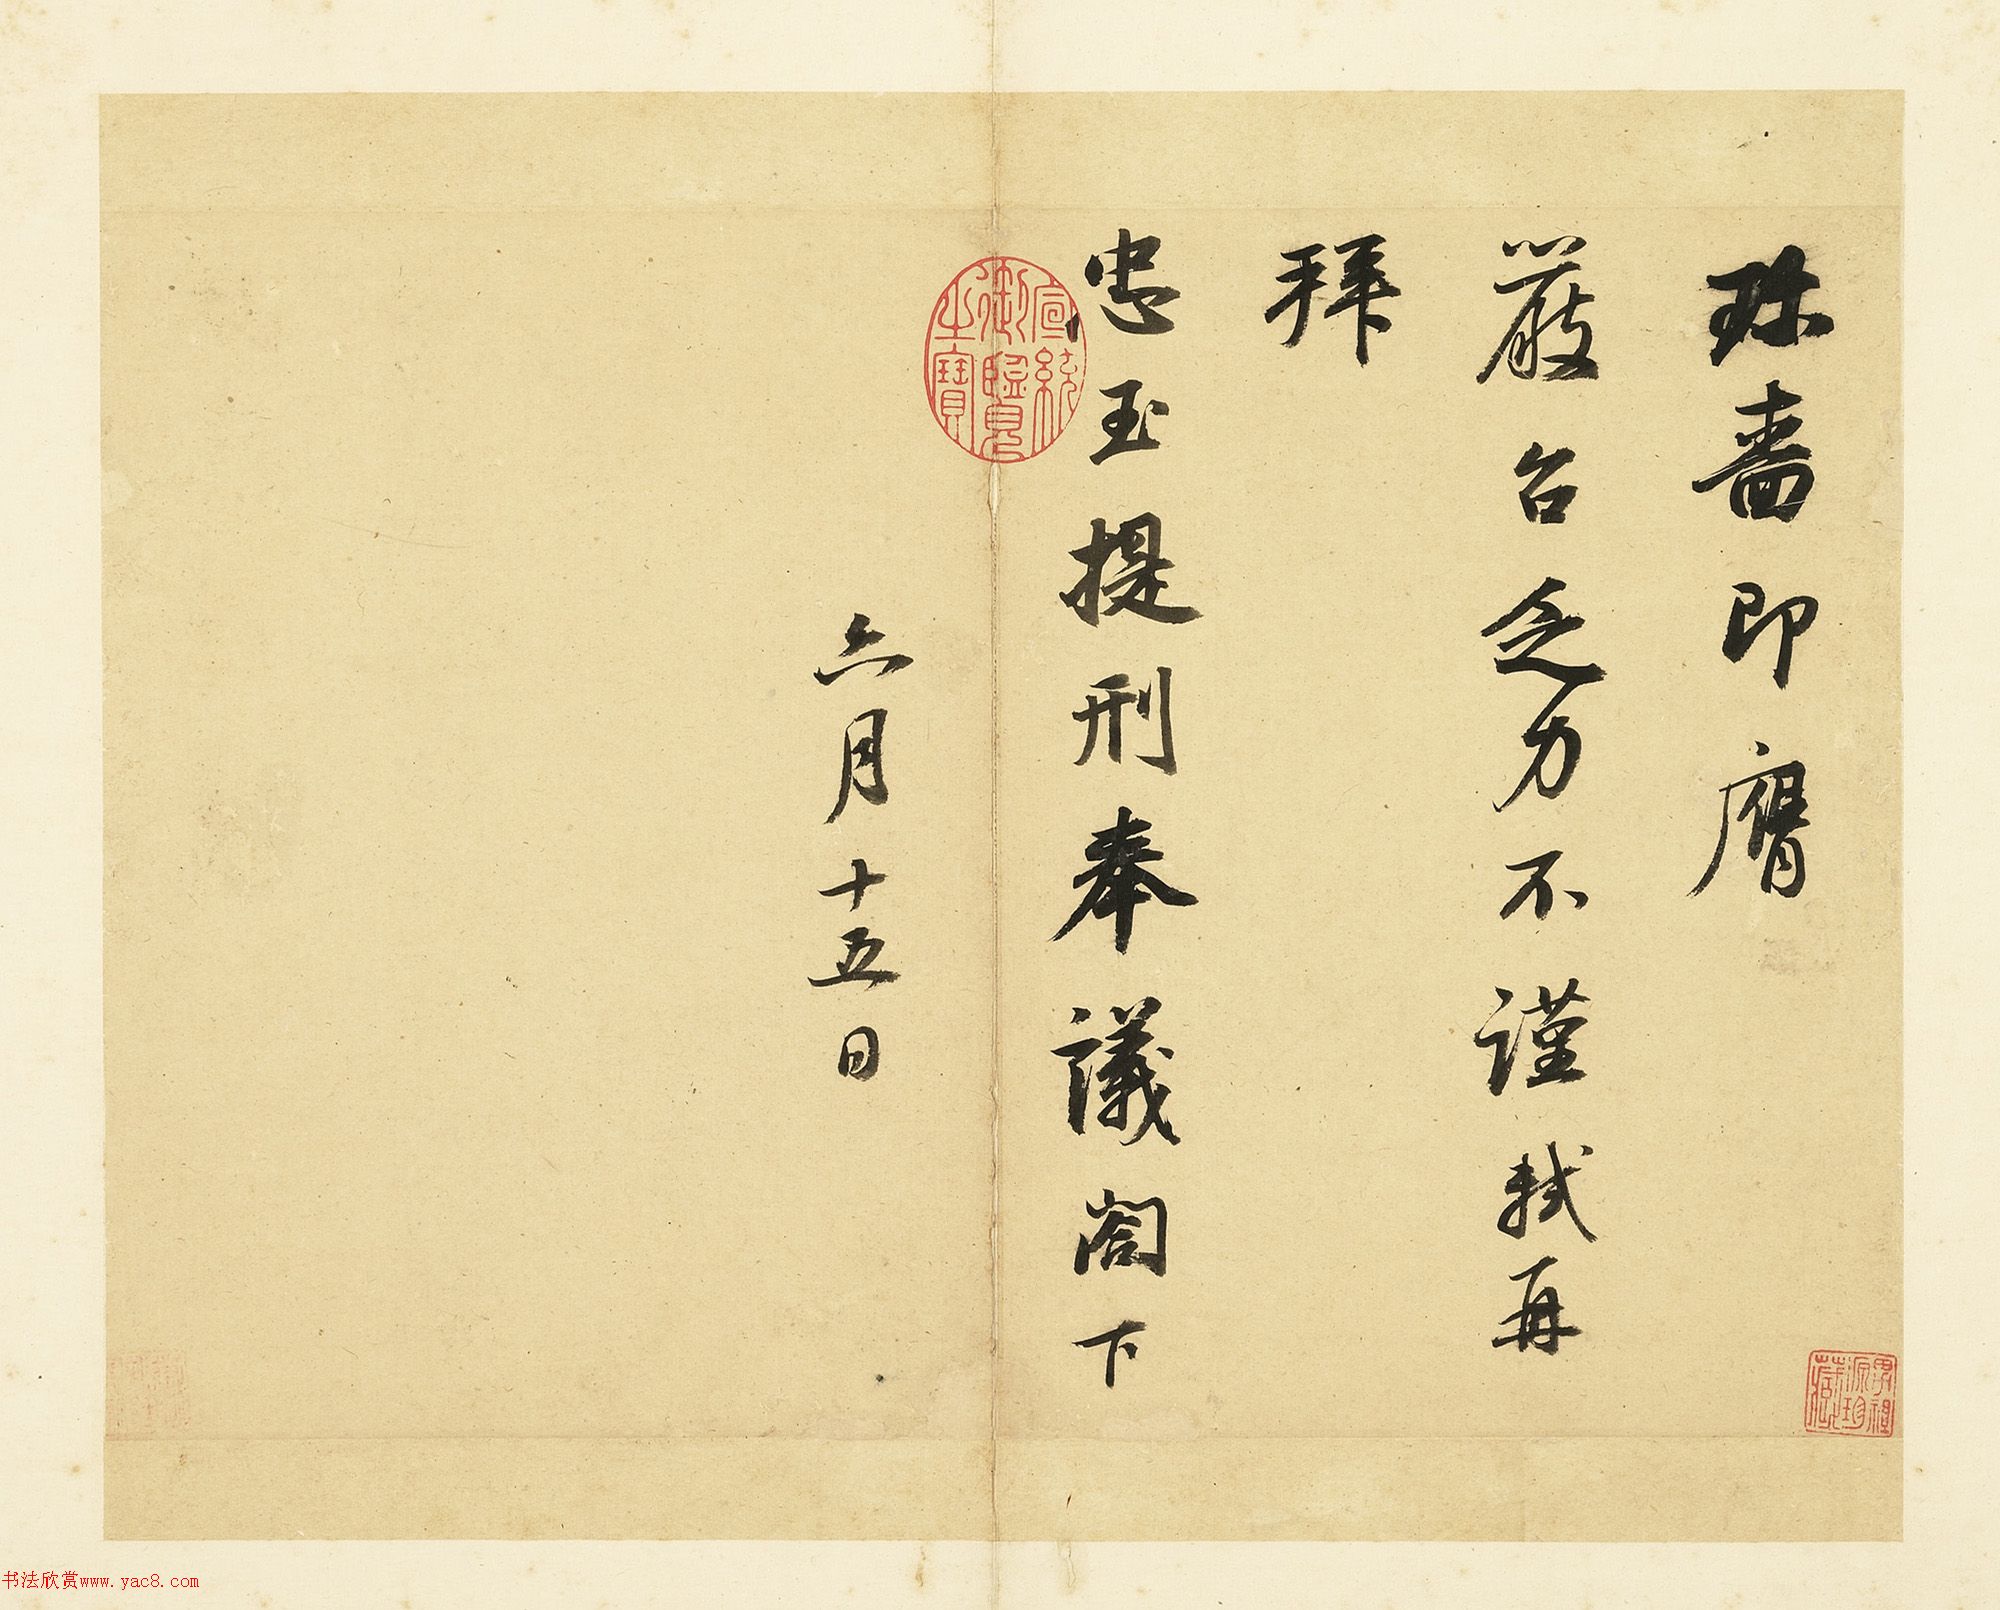 珎嗇即膺
嚴召乏力不謹軾再
拜
忠玉提刑奉議閤下
六月十五日
宣統御覽之寶
书法欣赏www.yac8.com